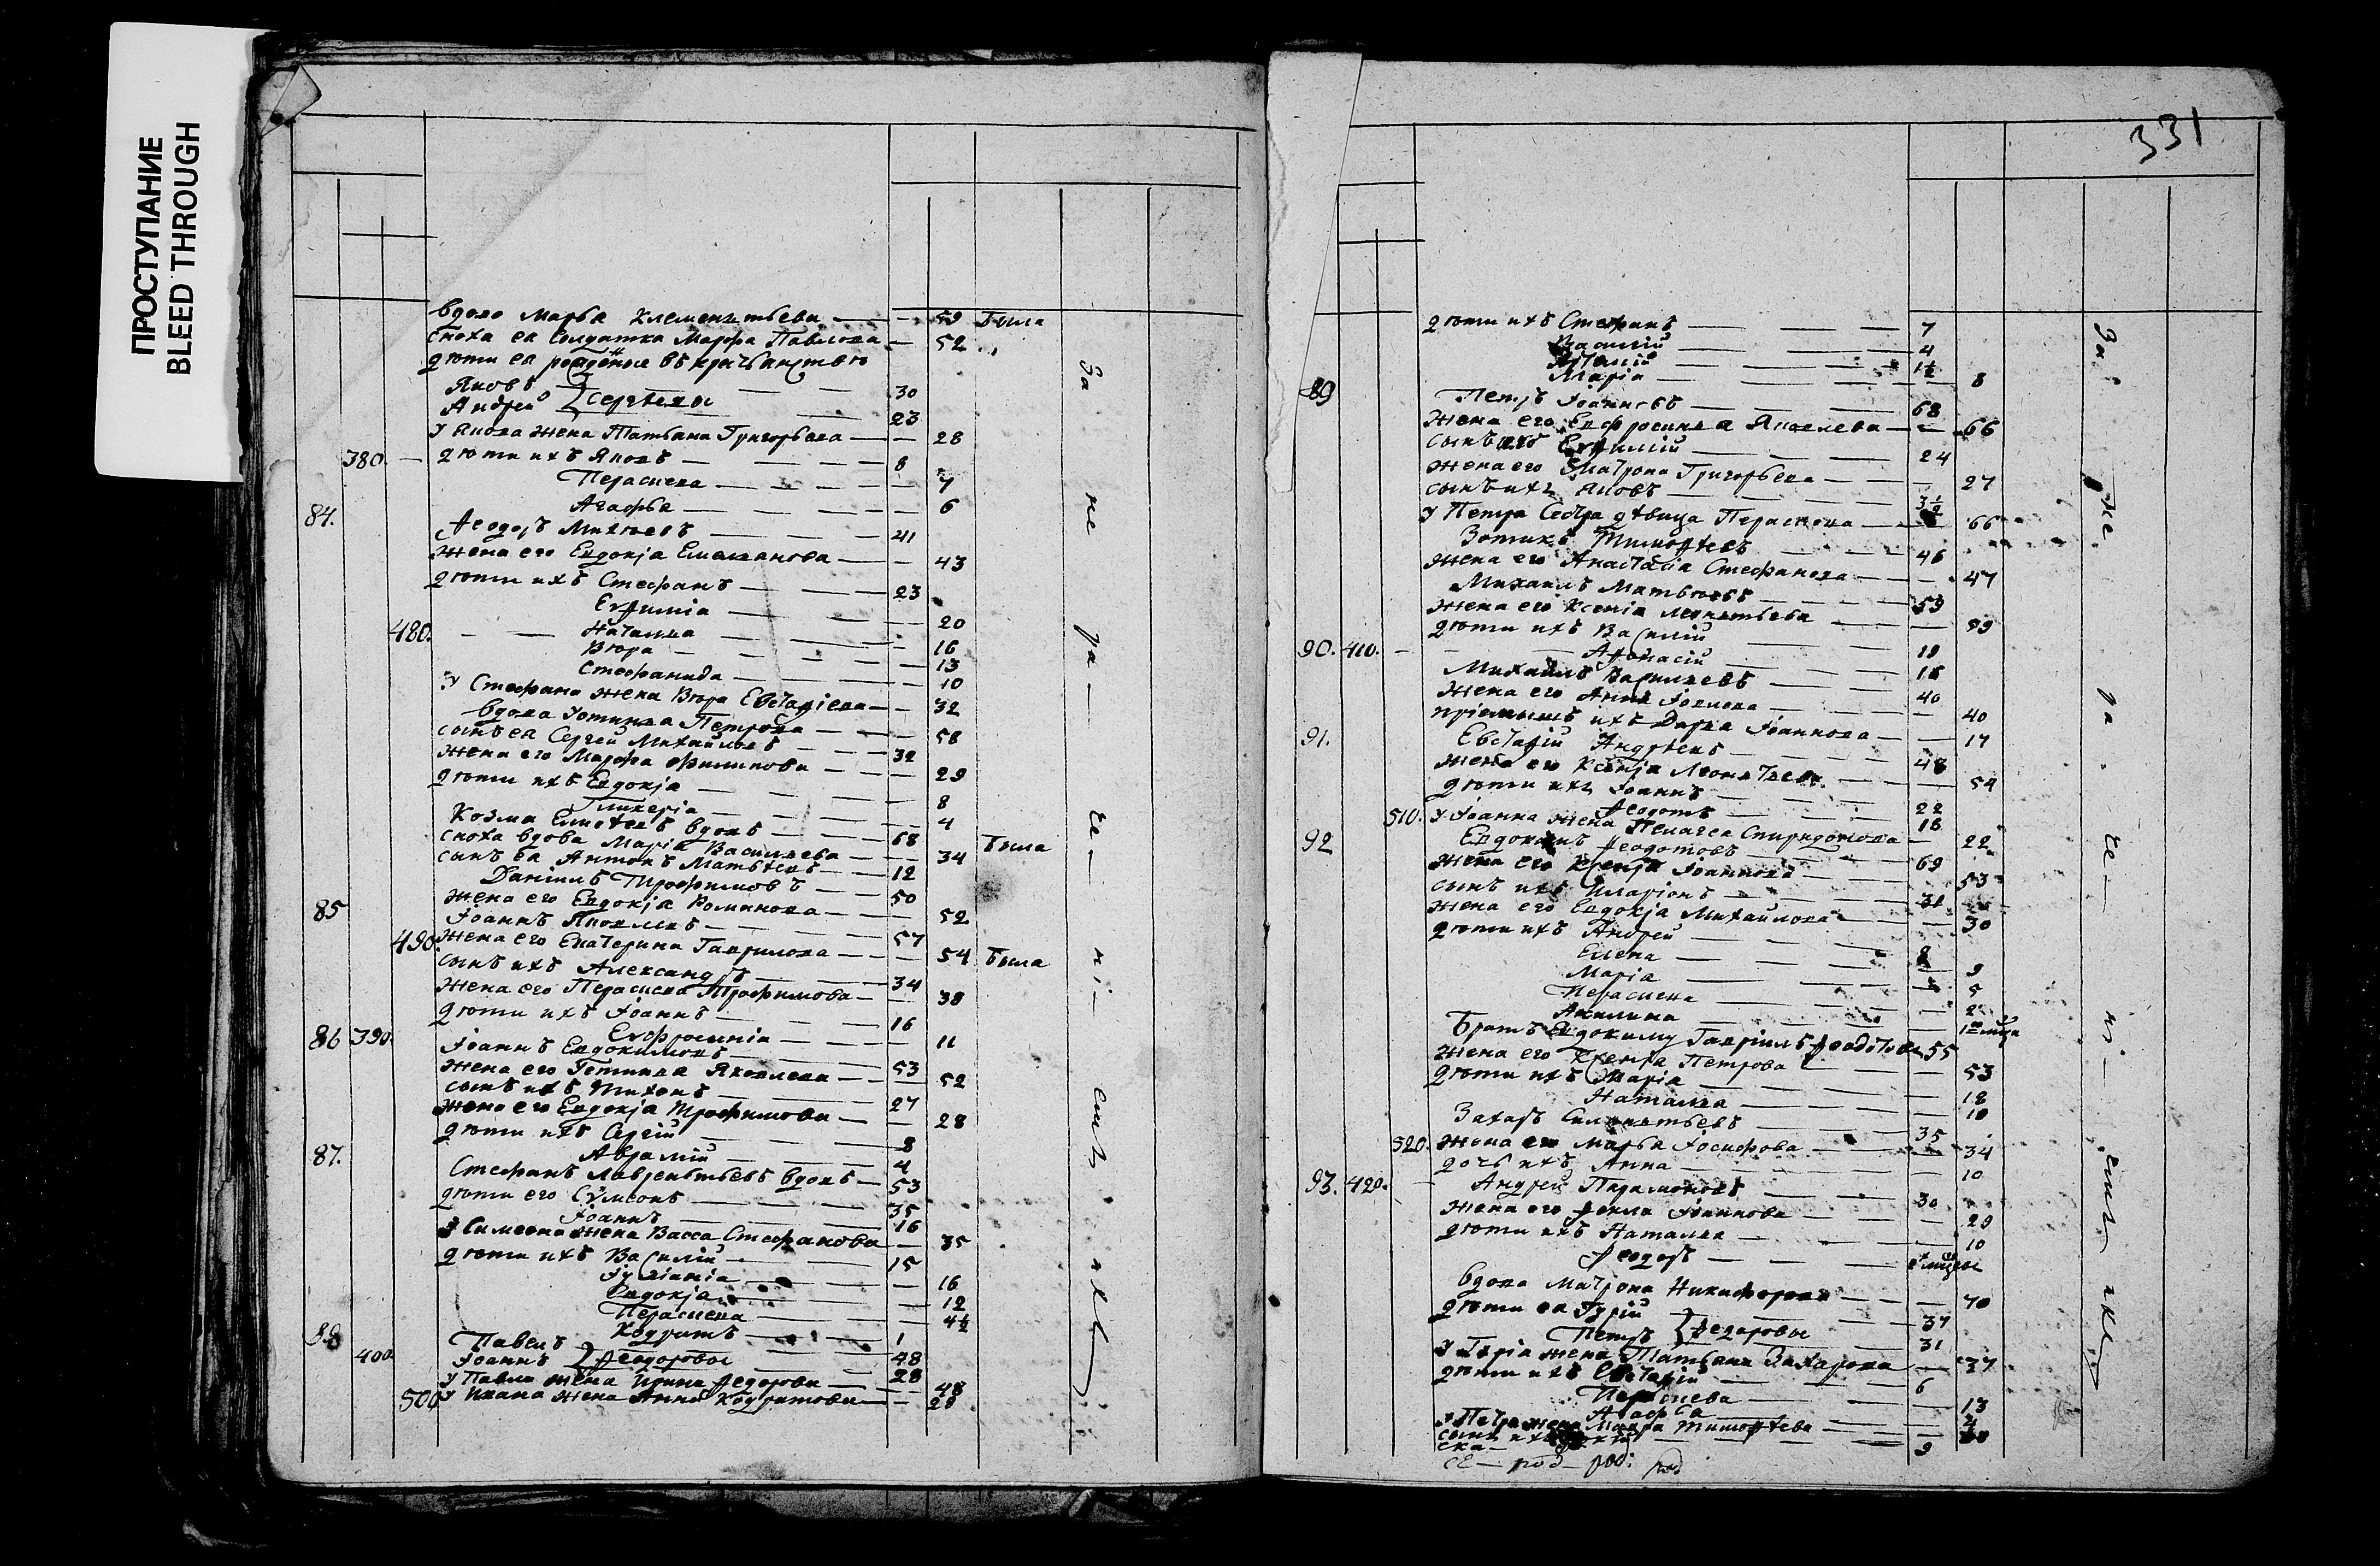 ПРОСТУПАНИЕ
BLEED THROUGH
вдова Марѳа Клементьева — 59 Была
сноха ея солдатка Марфа Павлова — 52
дѣти ея
Яковъ 30
Андрей } Сергѣевы 23
у Якова жена Татьяна Григорьева — 28
380. дѣти ихъ Яковъ — 8
Параскева — 7
Агафья — 6
84. Ѳеодоръ Михѣевъ — 41
жена его Евдокія Емельянова — 43
дѣти ихъ Стефанъ — 23
Евѳимія — 20
480. Наталья — 16
Вѣра — 13
Стефанида — 10
у Стефана жена Вѣра Евстафіева — 32
вдова Устинья Петрова — 58
сынъ ея Сергей Михайловъ — 32
жена его Марфа Филипова — 29
дѣти ихъ Евдокія — 8
Гликерія — 4
Козма вдовъ — 68
сноха вдова Марія Васильева — 34 Была
сынъ ея Антонъ Матвѣевъ — 12
Даніилъ Трофимовъ — 50
85 жена его Евдокія Романова — 52
Іоаннъ Яковлевъ — 57
490. жена его Екатерина Гаврилова — 54 Была
сынъ ихъ Александръ — 34
жена его Параскева Трофимова — 38
дѣти ихъ Іоаннъ — 16
Евфросинія — 11
86 390. Іоаннъ Евдокимовъ — 53
жена его Устинья Яковлева — 52
сынъ ихъ Тихонъ — 27
жена его Евдокія Трофимова — 28
дѣти ихъ Сергій — 8
87. Аврамій — 4
Стефанъ Лаврентьевъ вдовъ — 53
дѣти его Сѵмеонъ — 35
Іоаннъ — 16
у Симеона жена Васса Стефанова — 35
дѣти ихъ Василій — 15
Іуліанія — 16
Евдокія — 12
Параскева — 4½
Кодратъ — 1
88 Павелъ — 48
400. Іоаннъ } Ѳеодоровы 28
у Павла жена Ирина Ѳедорова — 48
500 у Ивана жена Анна Кодратова — 28
За не ра че ні емъ
331
дѣти ихъ Стефанъ — 7
Василій — 4
1½
Марія — 8
89 Петръ Іоанновъ — 68
жена его Евфросинья Яковлева — 66
сынъ его Евѳимій — 24
жена его Матрона Григорьева — 27
сынъ ихъ Яковъ — 3½
у Петра сестра дѣвица Параскева — 66
Зотикъ Тимоѳѣевъ — 46
жена его Анастасія Стефанова — 47
Михаилъ Матвѣевъ — 59
жена его Ксенія Леонтьева — 59
дѣти ихъ Василій — 19
90. 410. Аѳонасій — 16
Михаилъ Васильевъ — 40
жена его Анна — 40
пріемышъ ихъ Дарья Іоаннова — 17
91. Евстафій Андрѣевъ — 48
жена его Ксенія — 54
дѣти ихъ Іоаннъ — 22
Ѳеодотъ — 18
510. у Іоанна жена Пелагея Спиридонова — 22
92 Евдокимъ Ѳеодотовъ — 69
жена его Ксенія Іоаннова — 53
сынъ ихъ Иларіонъ — 31
жена его Евдокія Михайлова — 30
дѣти ихъ Андрей — 8
Елена — 9
Марія — 5
Параскева — 2
Акилина — 1
Братъ Евдокиму Гавріилъ Ѳеодотовъ 55
жена его Ксенія Петрова — 53
дѣти ихъ Марія — 18
Наталья — 10
Захаръ — 35
520. жена его Марья Іосифова — 34
дочь ихъ Анна — 10
93. 420. Андрей Парамоновъ — 30
жена его Ѳекла Іоаннова — 29
дѣти ихъ Наталья — 10
Ѳеодоръ
вдова Матрона Никифорова — 70
дѣти ея Гурій — 37
Петръ } Ѳедоровы 31
у Гурія жена Татьяна Захарова — 37
дѣти ихъ Евстафій — 6
Параскева — 13
Агафья — 4
у Петра жена Мавра Тимоѳѣева — 30
сынъ ихъ — 9
За же ра че ні емъ